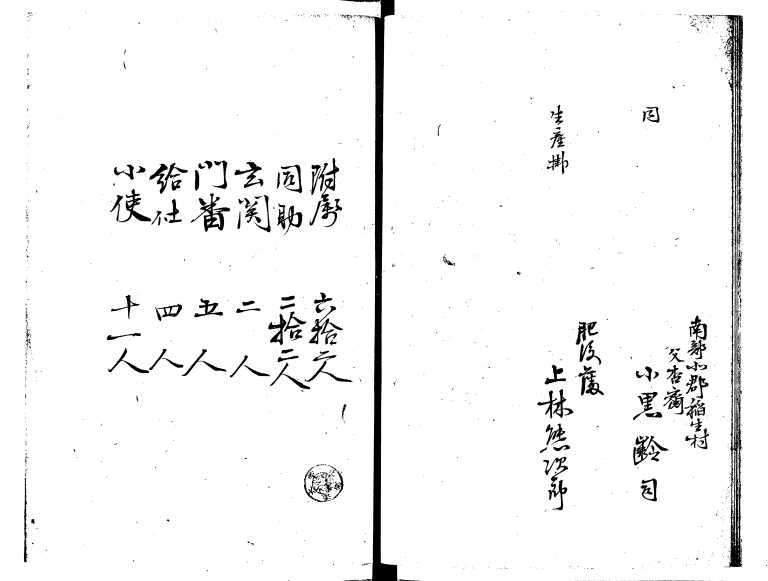 同
南部小郡稲生村
父杏斎
小黒齢司
生産掛
肥後藩
上林熊次郎
附属 六拾二人
同助 二拾二人
玄関 二人
門番 五人
給仕 四人
小使 十一人